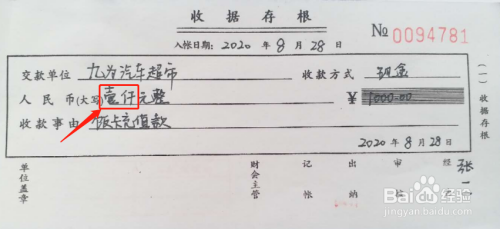 收据存根
№ 0094781
入帐日期：2020 年 8 月 28 日
交款单位 九为汽车超市 收款方式 现金
人民币(大写) 壹仟元整 ¥ 1000.00
收款事由 饭卡充值款
2020 年 8 月 28 日
单位盖章 财会主管 记帐 出纳 审核 经 张二
(一) 收据存根
Baidu 百度 经验
jingyan.baidu.com